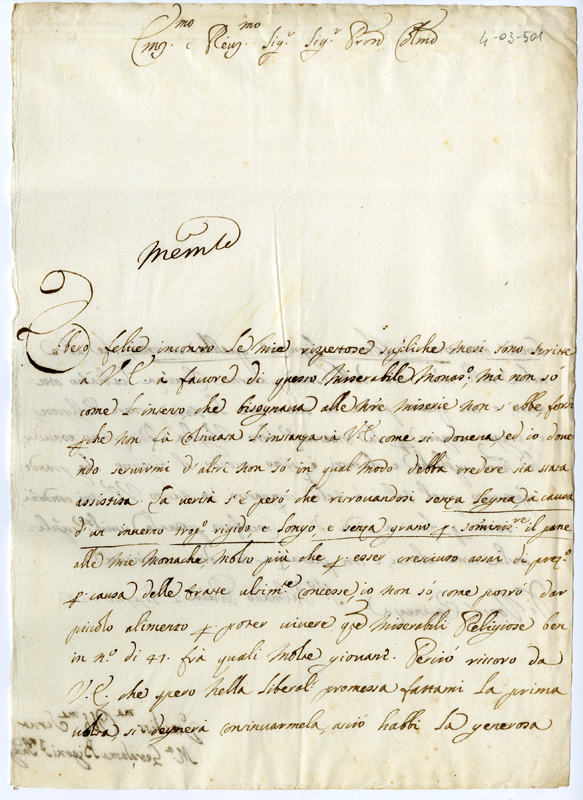 Em.mo e Rev.mo Sig.r Sig.r Pron Col.mo
4-03-501
Mem.le
Ebero felice incontro le mie rispettose suppliche mesi sono scritte
à V.E. à favore di questo Miserabile Monas.o mà non só
come l'intento che bisognava alle n're miserie non s'ebbe forsi
p che non fù coltivata l'instanza à V.E. come si doveva ed io dove
ndo servirmi d'altri non só in qual modo debba credere sia stata
assistita. La verità si é peró che ritrovandosi senza Legna, à causa
d'un inverno trop.o rigido e longo, e senza grano p. sommin.re il pane
alle mie Monache Molto più che p. esser cresciuto assai di prez.o
p. causa delle tratte ultim.te concesse io non só come potró dar
piccolo alimento p. poter vivere q'te Miserabili Religiose ben
in n.o di 41. frà quali Molte giovani. Perció ricorro da
V.E. che spero nella Liberal.à promessa fattami La prima
volta si degnerà continuarmela, acció habbi La generosa